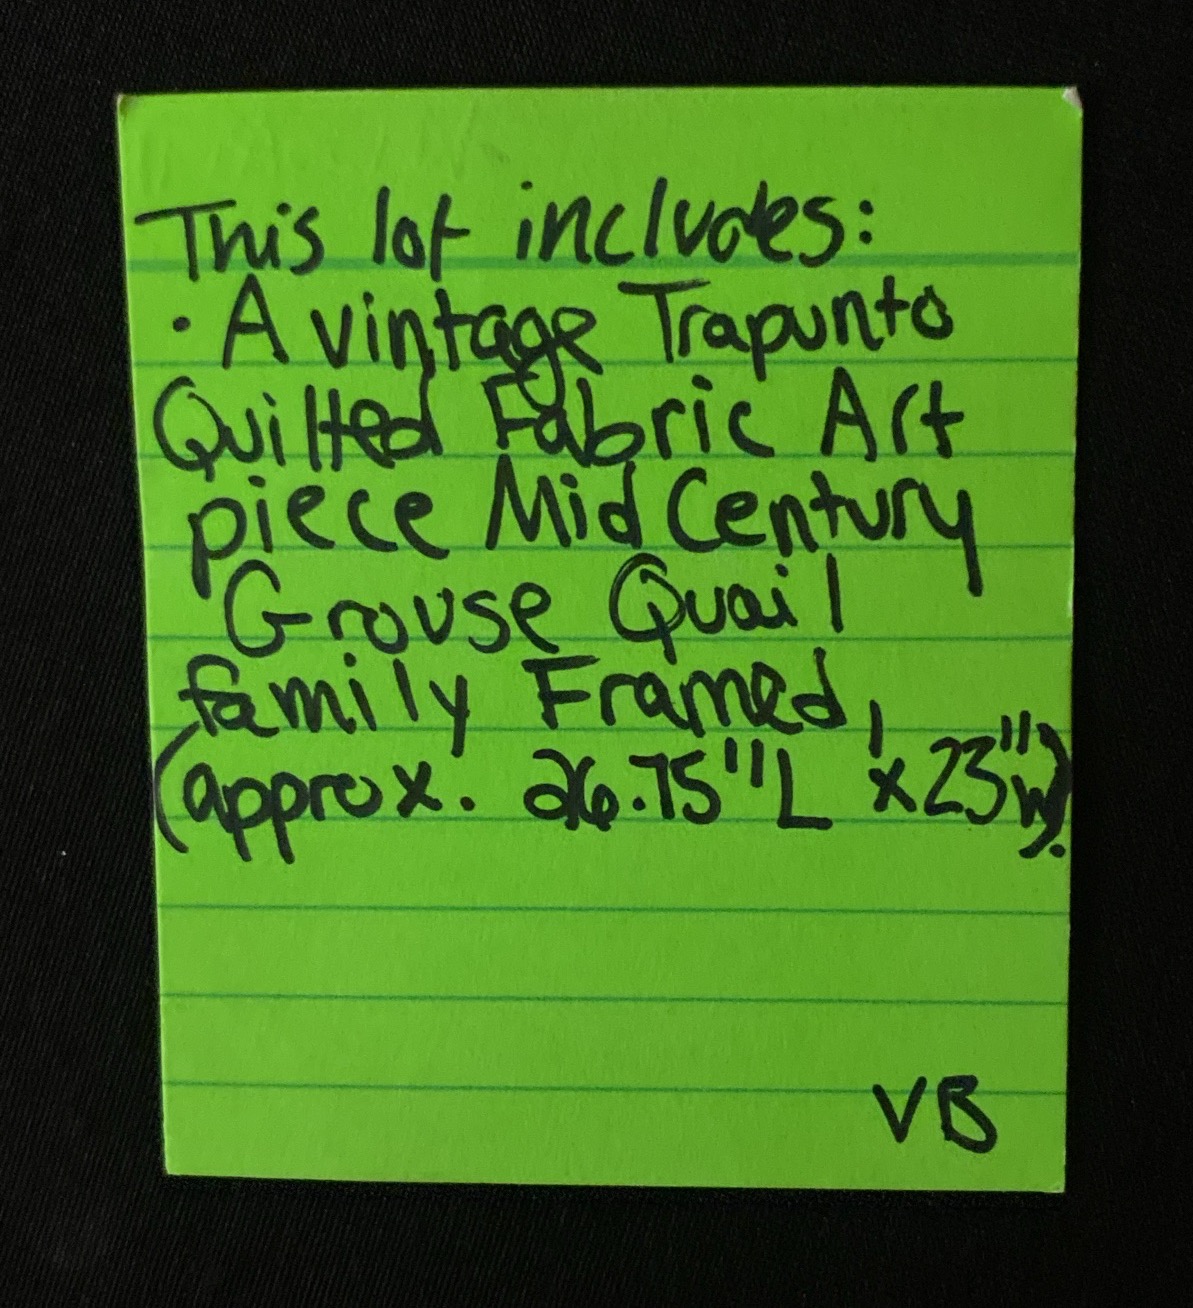 This lot includes:
• A vintage Trapunto
Quilted Fabric Art
piece Mid Century
Grouse Quail
family Framed,
(approx. 26.75"L x 23"w).
VB